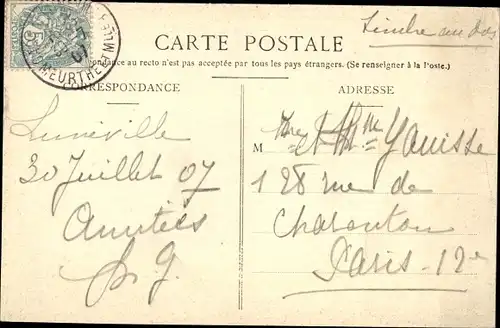 Timbre au dos
CARTE POSTALE
La Correspondance au recto n'est pas acceptée par tous les pays étrangers. (Se renseigner à la Poste.)
CORRESPONDANCE
ADRESSE
5
MEURTHE
Luneville
30 Juillet 07
Amitiés
M
128 rue de
Charenton
Paris - 12e